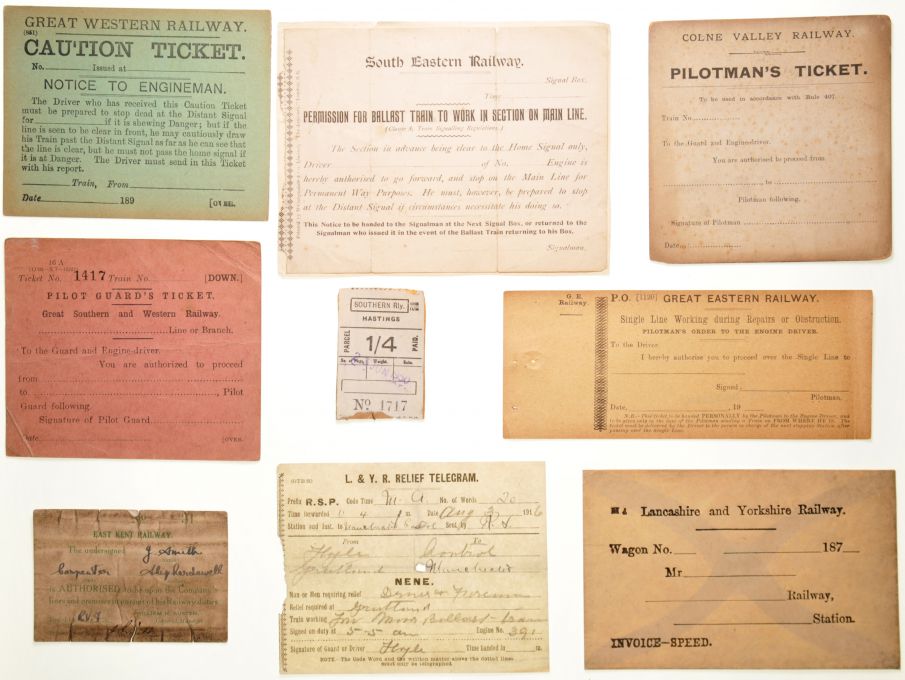 GREAT WESTERN RAILWAY.
(851)
CAUTION TICKET.
No. Issued at
NOTICE TO ENGINEMAN.
The Driver who has received this Caution Ticket
must be prepared to stop dead at the Distant Signal
for if it is shewing Danger; but if the
line is seen to be clear in front, he may cautiously draw
his Train past the Distant Signal as far as he can see that
the line is clear, but he must not pass the home signal if
it is at Danger. The Driver must send in this Ticket
with his report.
Train, From
Date 189 [OVER.
South Eastern Railway.
Signal Box.
Time
PERMISSION FOR BALLAST TRAIN TO WORK IN SECTION ON MAIN LINE.
(Clause A, Train Signalling Regulations.)
The Section in advance being clear to the Home Signal only,
Driver of No. Engine is
hereby authorised to go forward, and stop on the Main Line for
Permanent Way Purposes. He must, however, be prepared to stop
at the Distant Signal if circumstances necessitate his doing so.
This Notice to be handed to the Signalman at the Next Signal Box, or returned to the
Signalman who issued it in the event of the Ballast Train returning to his Box.
Signalman.
COLNE VALLEY RAILWAY.
PILOTMAN'S TICKET.
To be used in accordance with Rule 407.
Train No.
To the Guard and Engine-driver.
You are authorised to proceed from
to
Pilotman following.
Signature of Pilotman
Date
16 A
Ticket No. 1417 Train No. [DOWN.]
PILOT GUARD'S TICKET.
Great Southern and Western Railway.
Line or Branch.
To the Guard and Engine-driver.
You are authorized to proceed
from
to , Pilot
Guard following.
Signature of Pilot Guard
Date [OVER.
SOUTHERN Rly.
HASTINGS
PARCEL
1/4
PAID.
Weight. Date.
No 1717
G. E.
Railway.
P.O. [1120] GREAT EASTERN RAILWAY.
Single Line Working during Repairs or Obstruction.
PILOTMAN'S ORDER TO THE ENGINE DRIVER.
To the Driver
I hereby authorise you to proceed over the Single Line to
Signed,
Pilotman.
Date, 19
N.B.—This ticket to be handed PERSONALLY by the Pilotman to the Engine Driver, and
to be given only in the case of the Pilotman sending a Train on FROM WHERE HE IS. The
ticket must be delivered by the Driver to the person in charge of the next stopping Station after
passing over the Single Line.
EAST KENT RAILWAY.
The undersigned J. Smith
Carpenter Shepherdswell
is AUTHORISED to be upon the Company's
lines and premises in pursuit of his Railway duties
WILLIAM H. AUSTEN,
L. & Y. R. RELIEF TELEGRAM.
Prefix R.S.P. Code Time M.A No. of Words 20
Time forwarded Date Aug 1916
Station and Inst. to Sent by
From To
Hoyle Control
Manchester
NENE.
Man or Men requiring relief Driver & Fireman
Relief required at
Train working Low Moor Ballast train
Signed on duty at 5-5 am Engine No. 391
Signature of Guard or Driver Hoyle Time handed in
NOTE.—The Code Word and the written matter above the dotted lines
must only be telegraphed.
Lancashire and Yorkshire Railway.
Wagon No. 187
Mr
Railway,
Station.
INVOICE-SPEED.